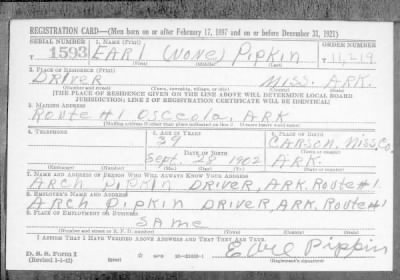 REGISTRATION CARD—(Men born on or after February 17, 1897 and on or before December 31, 1921)
SERIAL NUMBER 1. NAME (Print) ORDER NUMBER
T 1593 EARL (NONE) PIPKIN T 11,219
(First) (Middle) (Last)
2. PLACE OF RESIDENCE (Print)
DRIVER MISS. ARK.
(Number and street) (Town, township, village, or city) (County) (State)
[THE PLACE OF RESIDENCE GIVEN ON THE LINE ABOVE WILL DETERMINE LOCAL BOARD
JURISDICTION; LINE 2 OF REGISTRATION CERTIFICATE WILL BE IDENTICAL]
3. MAILING ADDRESS
ROUTE #1 OSCEOLA, ARK
[Mailing address if other than place indicated on line 2. If same insert word same]
4. TELEPHONE 5. AGE IN YEARS 6. PLACE OF BIRTH
39 CARSON, MISS, CO.
DATE OF BIRTH (Town or county)
Sept. 28 1902 ARK.
(Exchange) (Number) (Mo.) (Day) (Yr.) (State or country)
7. NAME AND ADDRESS OF PERSON WHO WILL ALWAYS KNOW YOUR ADDRESS
ARCH PIPKIN DRIVER, ARK. ROUTE #1.
8. EMPLOYER'S NAME AND ADDRESS
ARCH PIPKIN DRIVER, ARK, ROUTE #1
9. PLACE OF EMPLOYMENT OR BUSINESS
SAME
(Number and street or R. F. D. number) (Town) (County) (State)
I AFFIRM THAT I HAVE VERIFIED ABOVE ANSWERS AND THAT THEY ARE TRUE.
D. S. S. Form 1
(Revised 1-1-42) (over) GPO 16—21630-1 Pippin
(Registrant's signature)